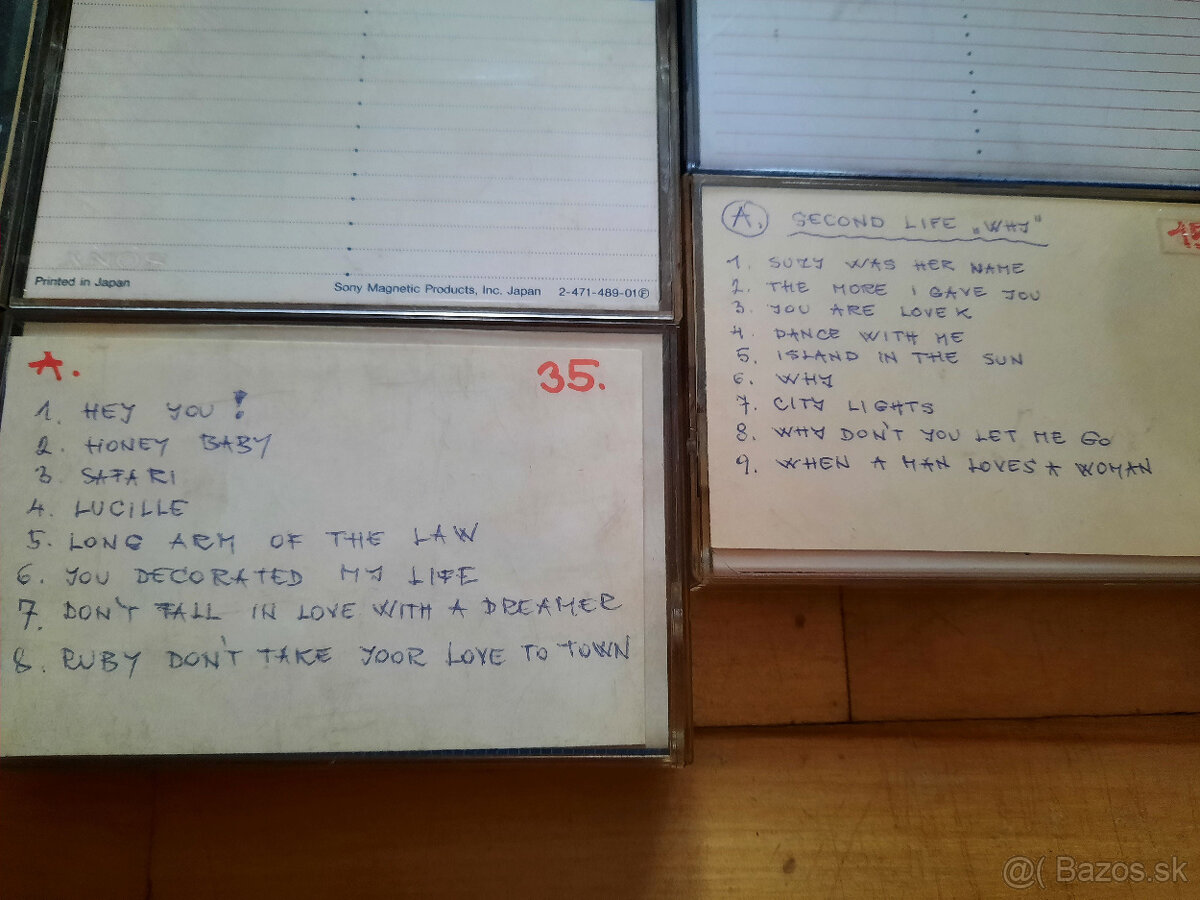 SONY
Printed in Japan
Sony Magnetic Products, Inc. Japan 2-471-489-01Ⓕ
A. 35.
1. HEY YOU!
2. HONEY BABY
3. SAFARI
4. LUCILLE
5. LONG ARM OF THE LAW
6. YOU DECORATED MY LIFE
7. DON'T FALL IN LOVE WITH A DREAMER
8. RUBY DON'T TAKE YOOR LOVE TO TOWN
A. SECOND LIFE „WHY"
1. SUZY WAS HER NAME
2. THE MORE I GAVE YOU
3. YOU ARE LOVEK
4. DANCE WITH ME
5. ISLAND IN THE SUN
6. WHY
7. CITY LIGHTS
8. WHY DON'T YOU LET ME GO
9. WHEN A MAN LOVES A WOMAN
@( Bazos.sk